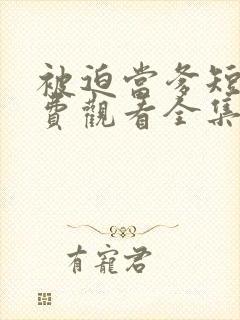 被迫當爹短
費觀看全集
有寵君